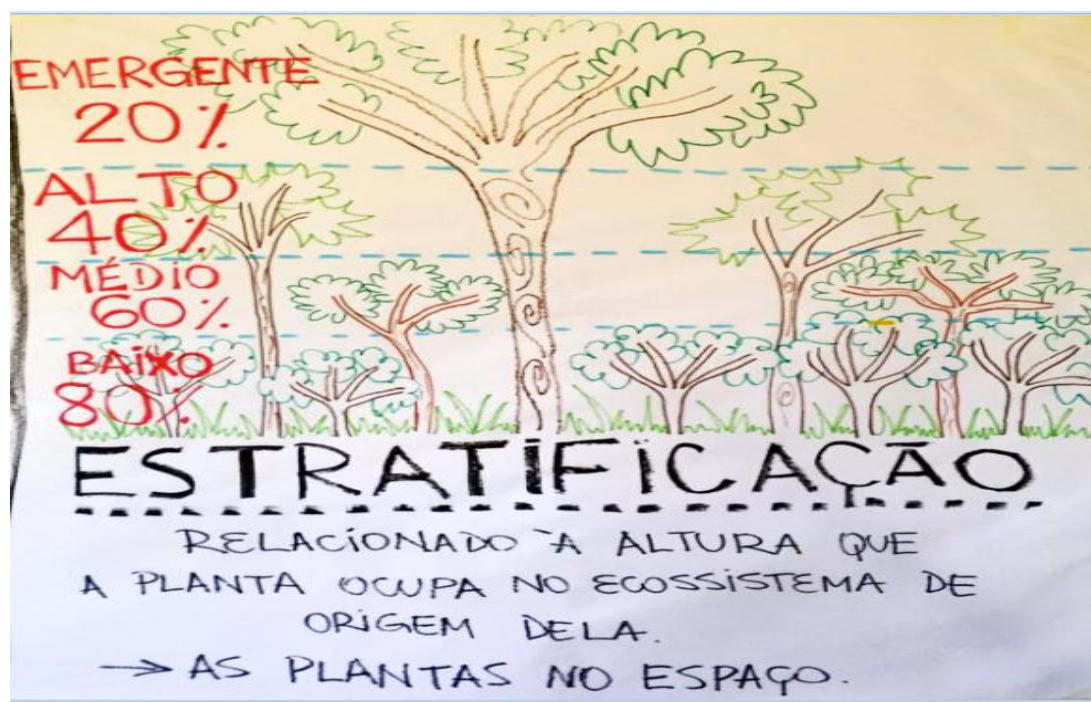 EMERGENTE
20%
ALTO
40%
MÉDIO
60%
BAIXO
80%
ESTRATIFICAÇÃO
RELACIONADO À ALTURA QUE
A PLANTA OCUPA NO ECOSSISTEMA DE
ORIGEM DELA.
→ AS PLANTAS NO ESPAÇO.